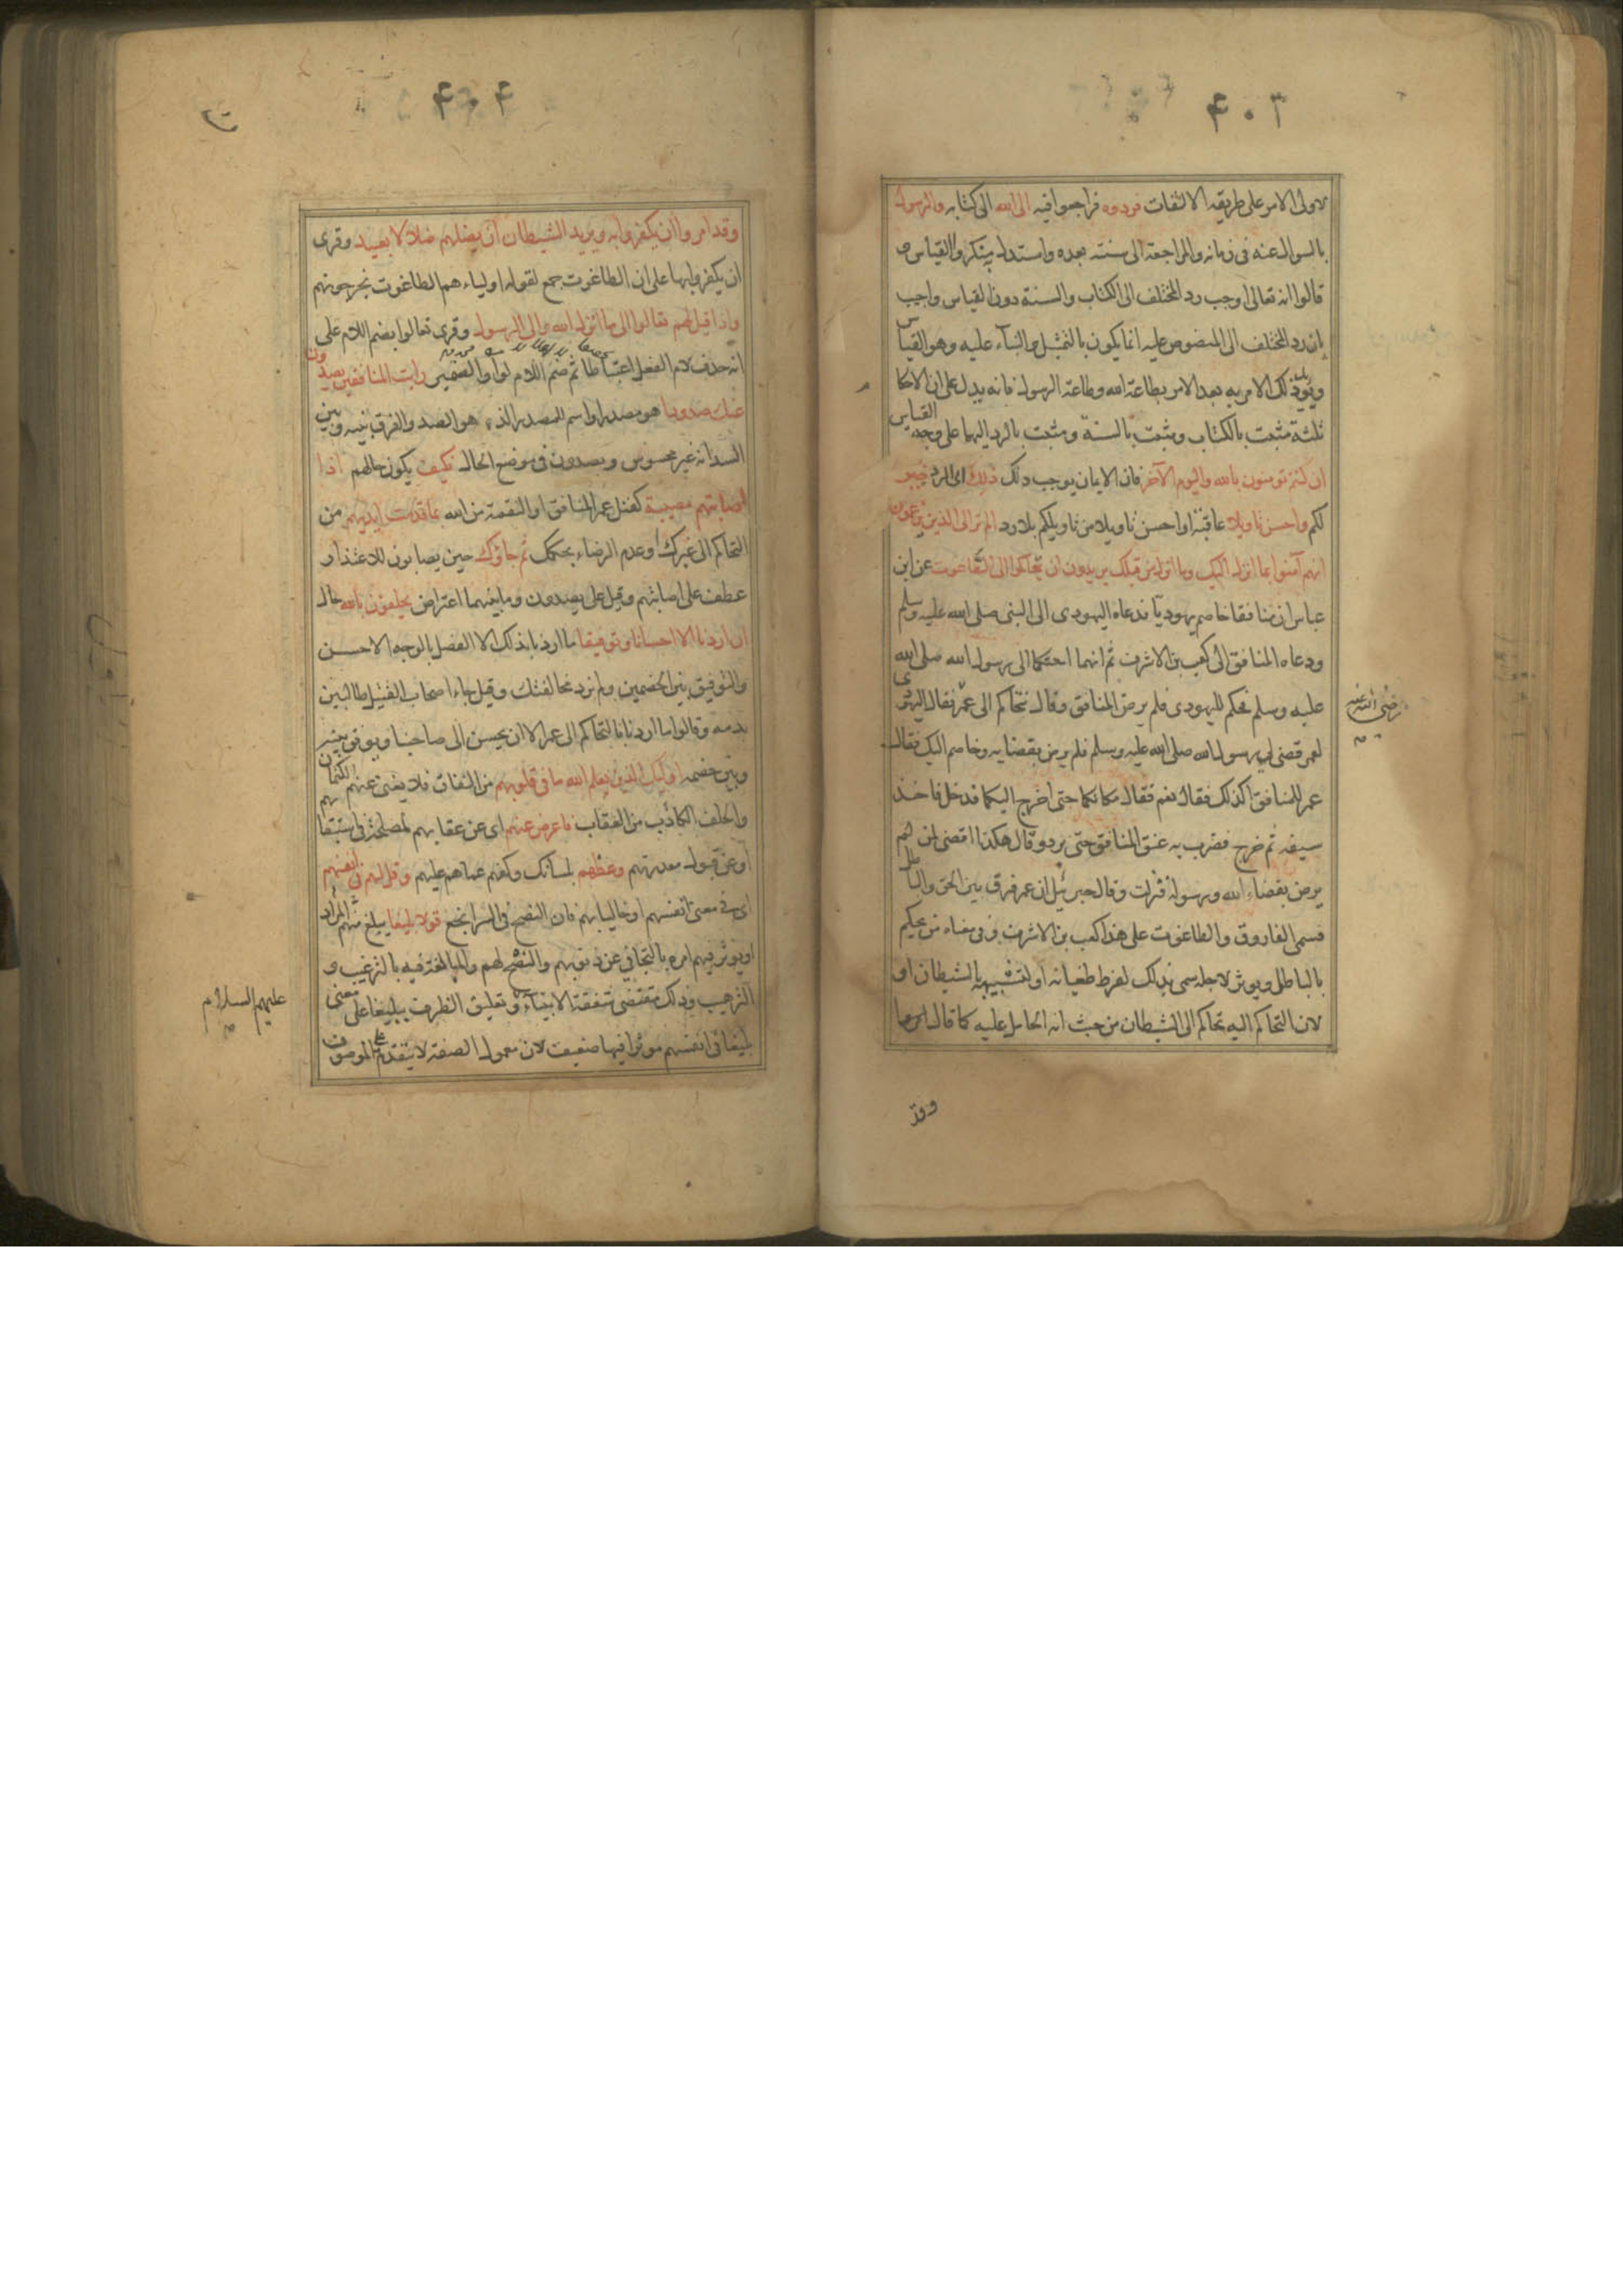 ٤٠٣
لاولى الامر على طريقه الالتفات فردوه فراجعوا فيه الى الله الى كتابه والرسول
بالسوال عنه فى زمانه والمراجعة الى سنته بعده واستدل به منكروا القياس و
قالوا انه تعالى اوجب رد المختلف الى الكتاب والسنة دون القياس واجيب
بان رد المختلف الى المنصوص عليه انما يكون بالتمثيل والبنآء عليه وهو القياس
ويويد ذلك الامر به بعد الامر بطاعة الله وطاعة الرسول فانه يدل على ان الاحكا
ثلثة مثبت بالكتاب ومثبت بالسنة ومثبت بالرد اليهما على وجه القياس
ان كنتم تومنون بالله واليوم الآخر فان الايمان يوجب ذلك ذلك اى الرد خير
لكم واحسن تاويلا عاقبة او احسن تاويلا من تاويلكم بلا رد الم تر الى الذين يزعمون
انهم آمنوا بما انزل اليك وما انزل من قبلك يريدون ان يتحاكموا الى الطاغوت عن ابن
عباس ان منافقا خاصم يهوديا فدعاه اليهودى الى النبى صلى الله عليه وسلم
ودعاه المنافق الى كعب بن الاشرف ثم انهما احتكما الى رسول الله صلى الله
عليه وسلم فحكم لليهودى فلم يرض المنافق وقال نتحاكم الى عمر فقال اليهودى
رضى الله عنه
لعمر قضى لى رسول الله صلى الله عليه وسلم فلم يرض بقضايه وخاصم اليك فقال
عمر للمنافق اكذلك فقال نعم فقال مكانكما حتى اخرج اليكما فدخل فاخذ
سيفه ثم خرج فضرب به عنق المنافق حتى برد وقال هكذا اقضى لمن لم
يرض بقضاء الله ورسوله فنزلت وقال جبرئيل ان عمر فرق بين الحق والباطل
فسمى الفاروق والطاغوت على هذا كعب بن الاشرف وفى معناه من يحكم
بالباطل ويوثر لاجله سمى بذلك لفرط طغيانه او لتشبيهه بالشيطان او
لان التحاكم اليه تحاكم الى الشيطان من حيث انه الحامل عليه كما قال
وقد
٤٠٤
وقد امروا ان يكفروا به ويريد الشيطان ان يضلهم ضلالا بعيدا وقرى
ان يكفروا بها على ان الطاغوت جمع لقوله اولياءهم الطاغوت يخرجونهم
واذا قيل لهم تعالوا الى ما انزل الله والى الرسول وقرى تعالوا بضم اللام على
انه حذف لام الفعل اعتباطا ثم ضم اللام لواو الضمير رايت المنافقين يصدون
عنك صدودا هو مصدر او اسم للمصدر الذى هو الصد والفرق بينه وبين
السد انه غير محسوس ويصدون فى موضع الحال فكيف يكون حالهم اذا
اصابتهم مصيبة كقتل عمر المنافق او النقمة من الله بما قدمت ايديهم من
التحاكم الى غيرك وعدم الرضاء بحكمك ثم جاؤك حين يصابون للاعتذار
عطف على اصابتهم وقيل على يصدون وما بينهما اعتراض يحلفون بالله حال
ان اردنا الا احسانا وتوفيقا ما اردنا بذلك الا الفصل بالوجه الاحسن
والتوفيق بين الخصمين ولم نرد مخالفتك وقيل جاء اصحاب القتيل طالبين
بدمه وقالوا ما اردنا بالتحاكم الى عمر الا ان يحسن الى صاحبنا ويوفق بينه
وبين خصمه اوليك الذين يعلم الله ما فى قلوبهم من النفاق فلا يغنى عنهم الكتمان
والحلف الكاذب من العقاب فاعرض عنهم اى عن عقابهم لمصلحة فى استبقائهم
او عن قبول معذرتهم وعظهم بلسانك وكفهم عما هم عليه وقل لهم فى انفسهم
اى فى معنى انفسهم او خاليا بهم فان النصح فى السر انجع قولا بليغا يبلغ منهم المراد
ويوثر فيهم امره بالتجافى عن ذنوبهم والنصح لهم والمبالغة فيه بالترغيب و
الترهيب وذلك مقتضى شفقة الانبيآء وتعليق الظرف ببليغا على معنى
عليهم السلام
بليغا فى انفسهم موثرا فيها ضعيف لان معمول الصفة لا يتقدم على الموصوف